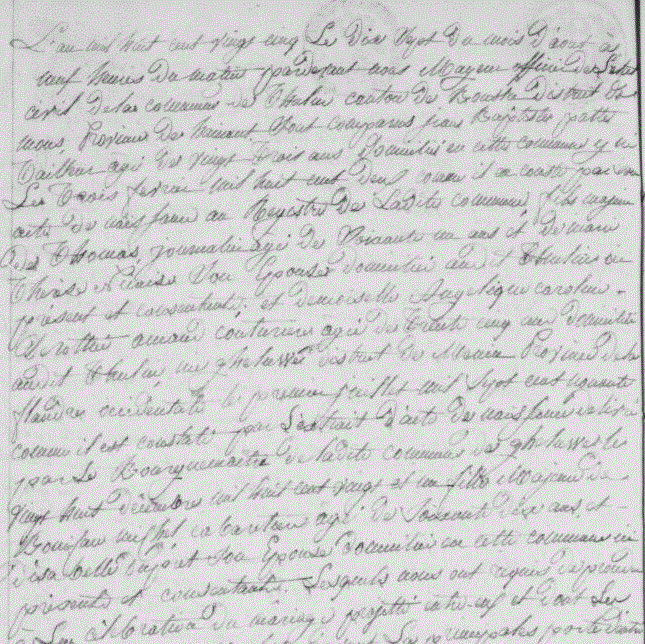 L'an mil huit cent vingt cinq Le Dix Sept Du mois D'aout à
neuf heures Du matin pardevant nous Mayeur officier De L'etat
civil De la commune De Thulin canton De Boussu District De
mons, Province De hainaut Sont comparus jean Baptiste
Tailleur agé De vingt Trois ans Domicilié en cette commune y né
Le Trois fevrier mil huit cent Deux comme il se conste par son
acte De naissance au Registre De Ladite commune fils majeur
De Thomas, journalier agé De Soixante un ans et De marie
Thérèse Son Epouse domiciliés audit Thulin ici
présent et consentants; et Demoiselle Angelique caroline
amand couturiere agée De Trente cinq ans Domiciliée
audit Thulin née à ghelewe District De Menin Province De la
flandre occidentale le premier juillet mil Sept cent nonante
comme il est constaté par L'extrait D'acte De naissance délivré
par Le Bourguemaitre De ladite commune De ghelewe le
vingt huit décembre mil huit cent vingt et un fille Majeure De
cabaretier agé De Soixante Dix ans et
D'isabelle Son Epouse Domiciliés en cette commune ici
présents et consentants. Lesquels nous ont requis De procéder
à La célébration Du mariage projetté entre eux et Dont Les
La principale porte D'entrée